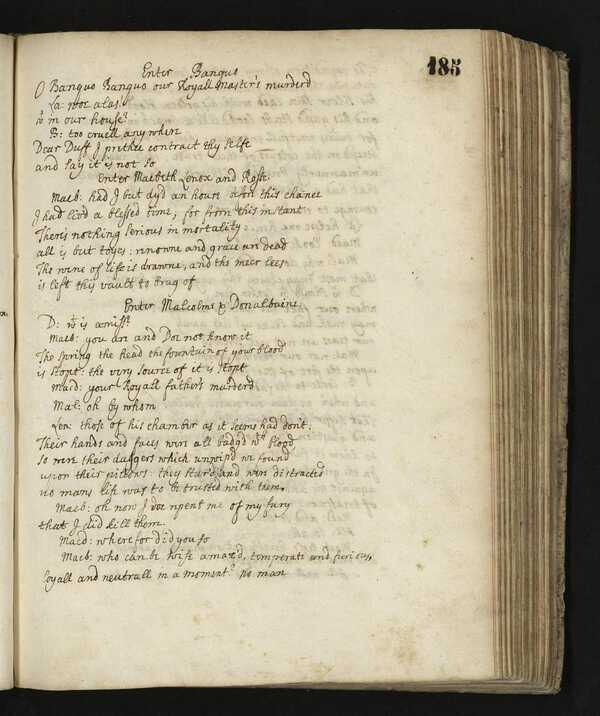 185
Enter Banquo
O Banquo Banquo our Royall Master's murderd
La: woe alas!
wt in our house?
B: too cruell any where
Dear Duff I prethee contract thy selfe
and say it is not so
Enter Macbeth Lenox and Rosse.
Macb: had I but dyd an houre before this chance
I had livd a blessed time, for from this instant
There's nothing serious in mortality
all is but toyes: renowne and grace are dead
The wine of life is drawne, and the meer lees
is left this vault to brag of
Enter Malcolme & Donalbaine
D: wt is amiss?
Macb: you are and doe not know it
The spring the head the fountain of your blood
is stopt: the very source of it is stopt
Macd: your Royall father's murderd
Mal: oh by whom
Len: those of his chamber as it seems had don't:
Their hands and faces were all badg'd wth blood
So were their daggers which unwip'd we found
upon their pillows: they star'd, and were distracted
no mans life was to be trusted with them.
Macb: oh now I doe repent me of my fury
that I did kill them.
Macd: wherefor did you so
Macb: who can be wise amaz'd, temperate and furious,
loyall and neutrall in a moment? no man